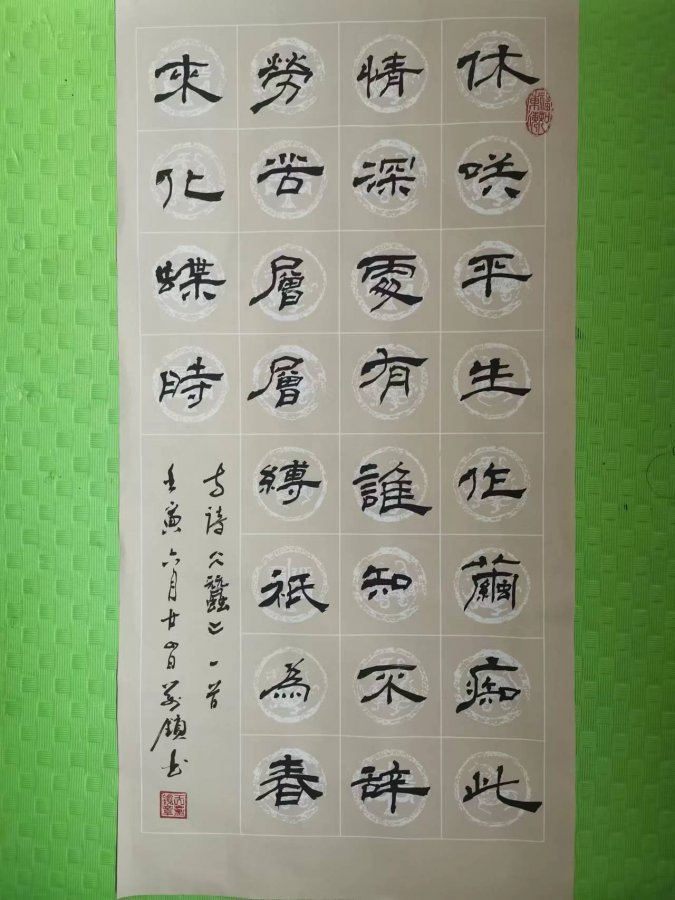 休咲平生作繭痴此
情深處有誰知不辞
勞苦層層縛祇為春
來化蝶時
古詩《蠶》一首
壬寅六月廿
鎮书